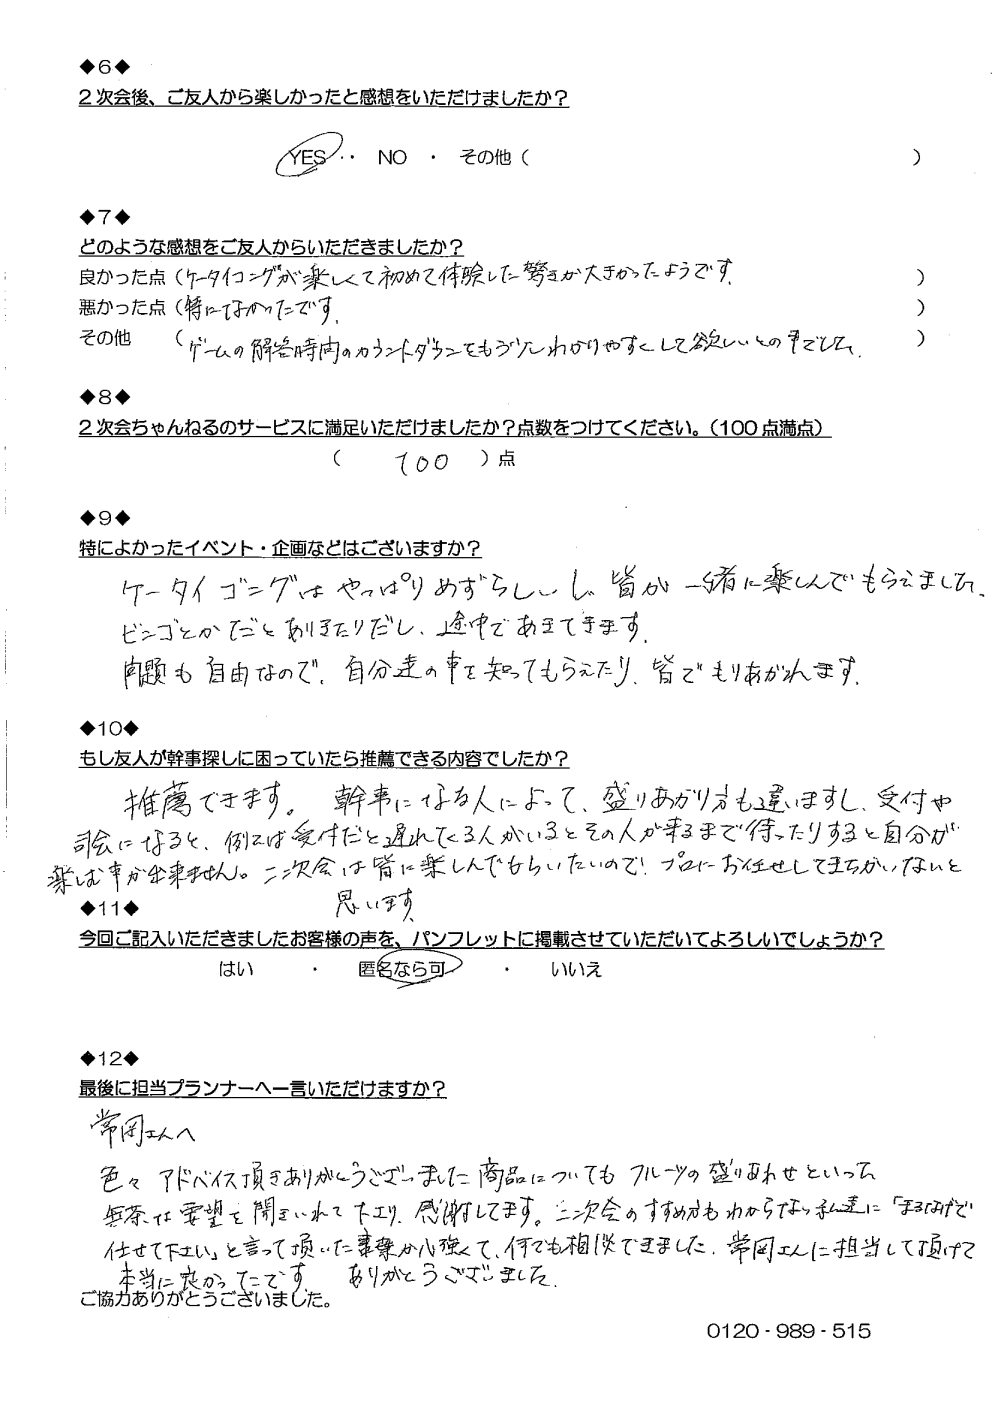 ◆6◆
２次会後、ご友人から楽しかったと感想をいただけましたか？
YES ・・ NO ・ その他（ ）
◆7◆
どのような感想をご友人からいただきましたか？
良かった点（ケータイゴングが楽しくて初めて体験した驚きが大きかったようです。）
悪かった点（特になかったです。）
その他 （ゲームの解答時間のカウントダウンをもう少しわかりやすくして欲しいとの事でした。）
◆8◆
２次会ちゃんねるのサービスに満足いただけましたか？点数をつけてください。（100点満点）
（ 100 ）点
◆9◆
特によかったイベント・企画などはございますか？
ケータイゴングはやっぱりめずらしいし、皆が一緒に楽しんでもらえました。
ビンゴとかだとありきたりだし、途中であきてきます。
問題も自由なので、自分達の事を知ってもらえたり、皆でもりあがれます。
◆10◆
もし友人が幹事探しに困っていたら推薦できる内容でしたか？
推薦できます。 幹事になる人によって、盛りあがり方も違いますし、受付や
司会になると、例えば受付だと遅れてくる人がいるとその人が来るまで待ったりすると自分が
楽しむ事が出来ません。二次会は皆に楽しんでもらいたいので、プロにお任せしてまちがいないと
思います。
◆11◆
今回ご記入いただきましたお客様の声を、パンフレットに掲載させていただいてよろしいでしょうか？
はい ・ 匿名なら可 ・ いいえ
◆12◆
最後に担当プランナーへ一言いただけますか？
常岡さんへ
色々アドバイス頂きありがとうございました。商品についてもフルーツの盛りあわせといった
無茶な要望を聞きいれて下さり、感謝してます。二次会のすすめ方もわからなっ私達に「まるなげで
任せて下さい」と言って頂いた事が心強くて、何でも相談できました。常岡さんに担当して頂けて
本当に良かったです ありがとうございました。
ご協力ありがとうございました。
0120-989-515